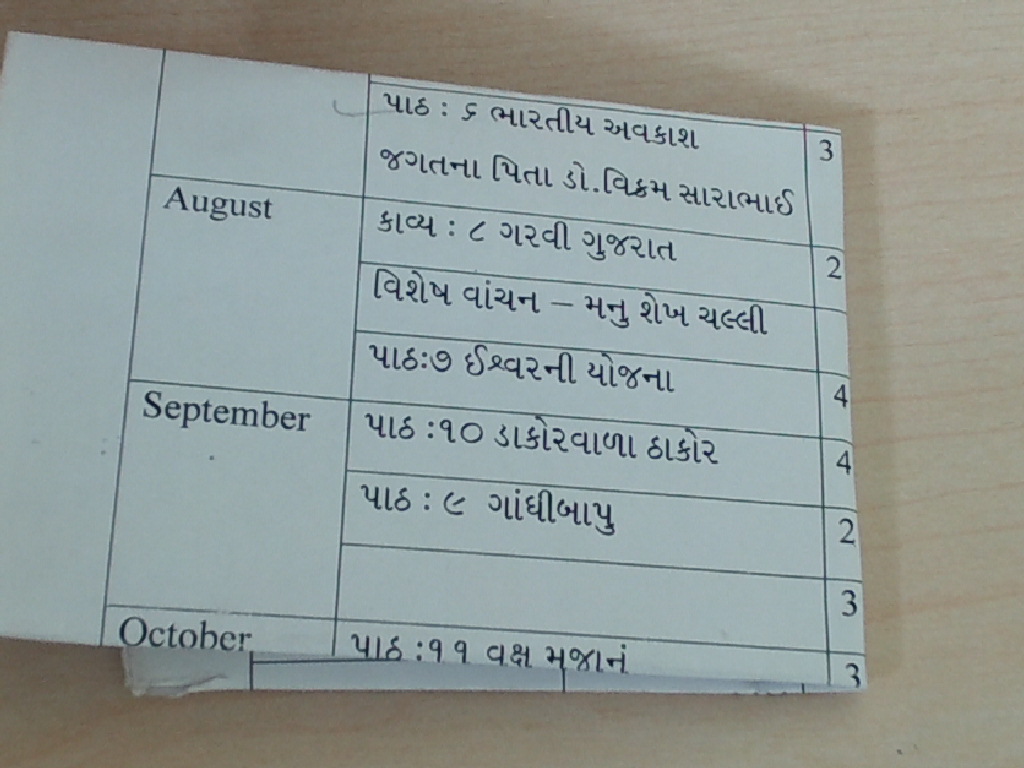 પાઠ : ૬ ભારતીય અવકાશ
જગતના પિતા ડો.વિક્રમ સારાભાઈ
3
August
કાવ્ય : ૮ ગરવી ગુજરાત
2
વિશેષ વાંચન – મનુ શેખ ચલ્લી
પાઠ:૭ ઈશ્વરની યોજના
4
September
પાઠ :૧૦ ડાકોરવાળા ઠાકોર
4
પાઠ : ૯ ગાંધીબાપુ
2
3
October
પાઠ :૧૧ વૃક્ષ મજાનું
3